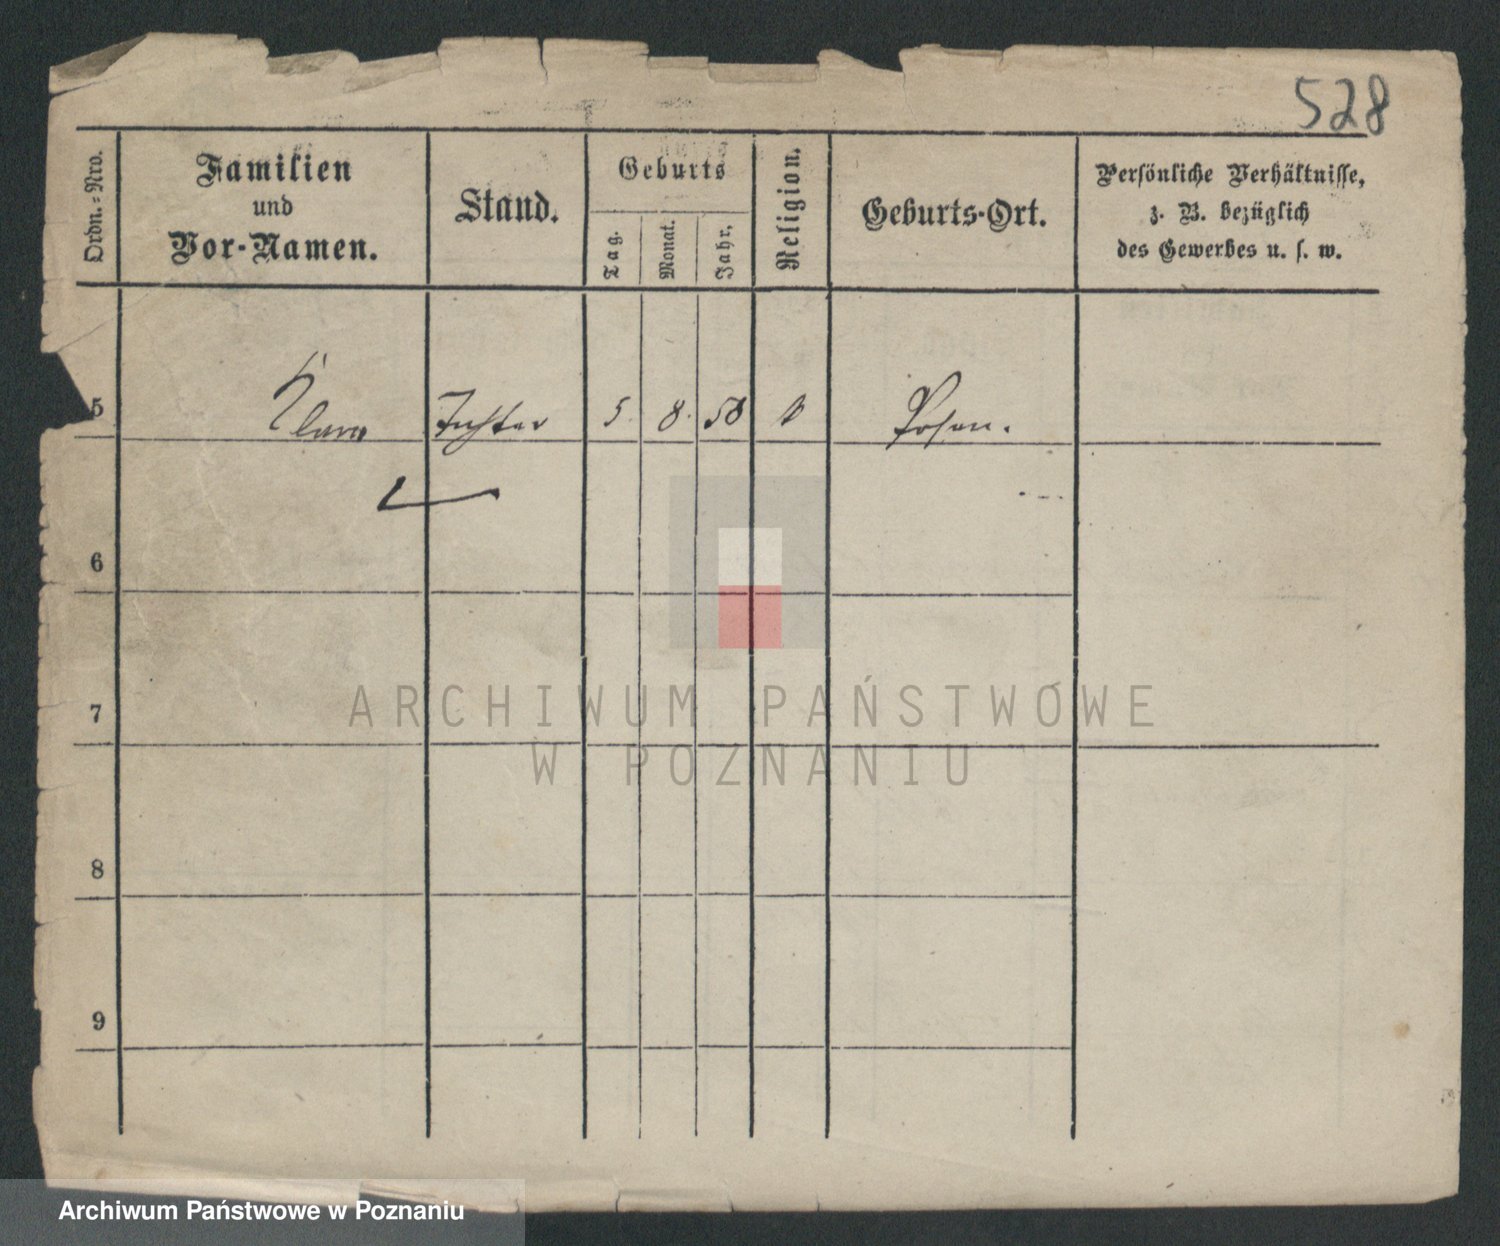 528
Ordn.-Nro.
Familien
und
Vor-Namen.
Stand.
Geburts
Tag.
Monat.
Jahr.
Religion.
Geburts-Ort.
Persönliche Verhältnisse,
z. B. bezüglich
des Gewerbes u. s. w.
5 Klara Tochter 5 8. 58 k Posen.
6
7
8
9
ARCHIWUM PAŃSTWOWE
W POZNANIU
Archiwum Państwowe w Poznaniu